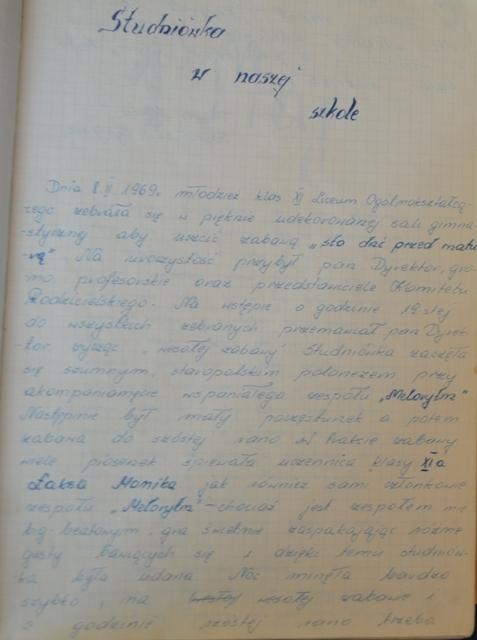 Studniówka
w naszej
szkole
Dnia 8.II 1969r. młodzież klas XI Liceum Ogólnokształcą-
cego zebrała się w pięknie udekorowanej sali gimna-
-stycznej aby uczcić zabawą „sto dni przed matu-
-rą". Na uroczystość przybył pan Dyrektor, gro-
no profesorskie oraz przedstawiciele Komitetu
Rodzicielskiego. Na wstępie o godzinie 19-stej
do wszystkich zebranych przemawiał pan Dyrek-
-tor życząc „wesołej zabawy" Studniówka zaczęła
się szumnym, staropolskim polonezem przy
akompaniamęcie wspaniałego zespołu „Melorytm"
Następnie był mały poczęstunek a potem
zabawa do szóstej rano. W trakcie zabawy
wiele piosenek śpiewała uczennica klasy XIa
Łaksa Monika jak również sami członkowie
zespołu „Melorytm" – chociaż jest zespołem nie
big-beatowym, gra świetnie zaspakajając różne
gusty bawiących się i dzięki temu studniów-
-ka była udana Noc minęła bardzo
szybko, na wesołej zabawie i
o godzinie szóstej rano trzeba